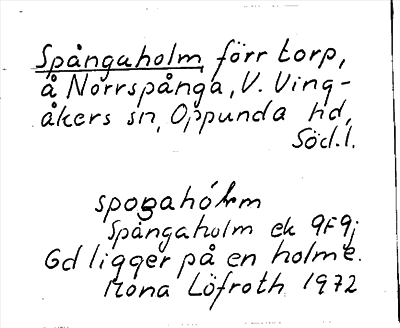 Spångaholm förr torp,
å Norrspånga, V. Ving-
åkers sn, Oppunda hd,
Söd.l.
spoŋahólm
Spångaholm ek 9F9j
Gd ligger på en holme.
Mona Löfroth 1972